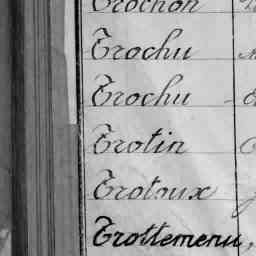 Trochon
Trochu
Trochu
Trotin
Trotoux
Trottemenu,